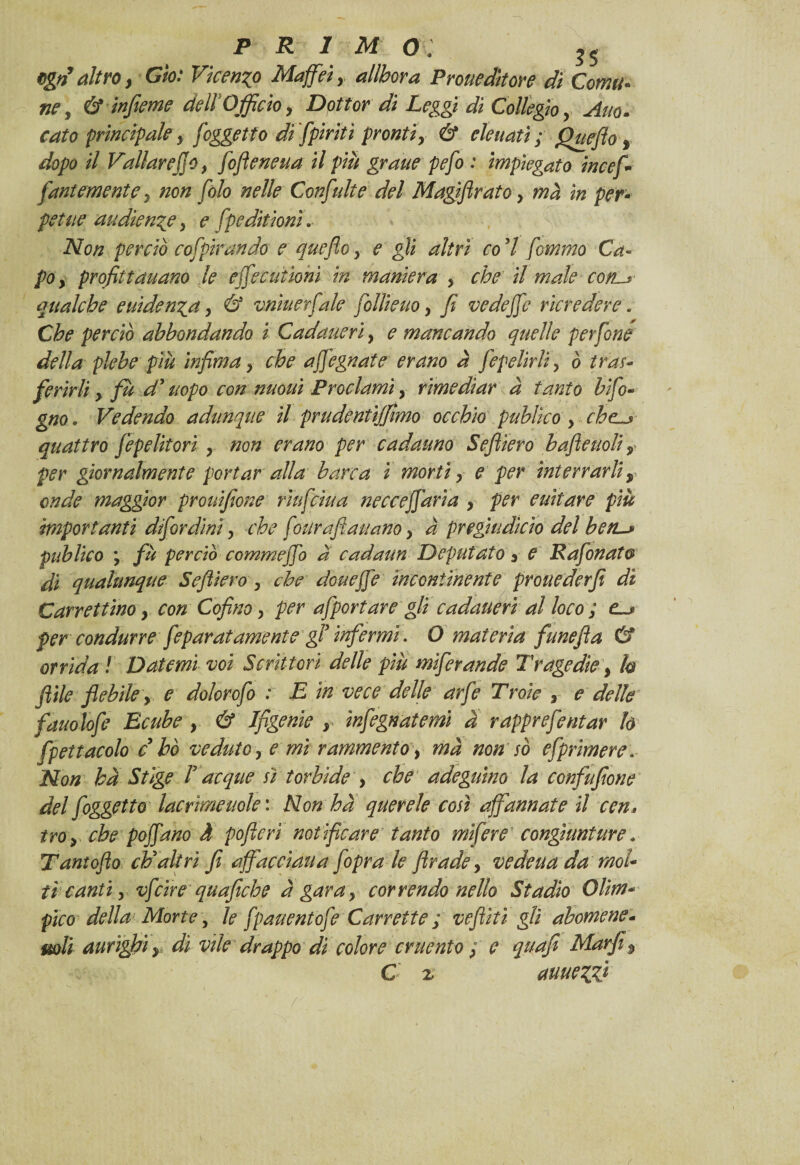 PRIMO. 35
ogn' altro, Gio: Vicenzo Maffei, allhora Proueditore di Comu-
ne, & inſieme dell'Officio, Dottor di Leggi di Collegio, Auo-
cato principale, ſoggetto di ſpiriti pronti, & eleuati; Queſto,
dopo il Vallareſſo, ſoſteneua il più graue peſo: impiegato inceſ-
ſantemente, non ſolo nelle Conſulte del Magiſtrato, mà in per-
petue audienze, e ſpeditioni.
Non perciò coſpirando e queſto, e gli altri co'l ſommo Ca-
po, profittauano le eſſecutioni in maniera, che il male con
qualche euidenza, & vniuerſale ſollieuo, ſi vedeſſe ricredere.
Che perciò abbondando i Cadaueri, e mancando quelle perſone
della plebe più infima, che aſſegnate erano à ſepelirli, ò traſ-
ferirli, fù d'uopo con nuoui Proclami, rimediar à tanto biſo-
gno. Vedendo adunque il prudentiſſimo occhio publico, che
quattro ſepelitori, non erano per cadauno Seſtiero baſteuoli,
per giornalmente portar alla barca i morti, e per interrarli,
onde maggior prouiſione riuſciua necceſſaria, per euitare più
importanti diſordini, che ſouraſtauano, à pregiudicio del ben
publico; fù perciò commeſſo à cadaun Deputato, e Raſonato
di qualunque Seſtiero, che doueſſe incontinente prouederſi di
Carrettino, con Coſino, per aſportare gli cadaueri al loco; e
per condurre ſeparatamente gl' infermi. O materia funeſta &
orrida! Datemi voi Scrittori delle più miſerande Tragedie, lo
ſtile flebile, e doloroſo: E in vece delle arſe Troie, e delle
fauoloſe Ecube, & Ifigenie, inſegnatemi à rappreſentar lo
ſpettacolo c' hò veduto, e mi rammento, mà non sò eſprimere.
Non hà Stige l' acque sì torbide, che adeguino la confuſione
del ſoggetto lacrimeuole: Non hà querele così affannate il cen-
tro, che poſſano à poſteri notificare tanto miſere congiunture.
Tantoſto ch'altri ſi affacciaua ſopra le ſtrade, vedeua da mol-
ti canti, vſcire quaſiche à gara, correndo nello Stadio Olim-
pico della Morte, le ſpauentoſe Carrette; veſtiti gli abomene-
uoli aurighi, di vile drappo di colore cruento; e quaſi Marſi,
C 2 auuezzi